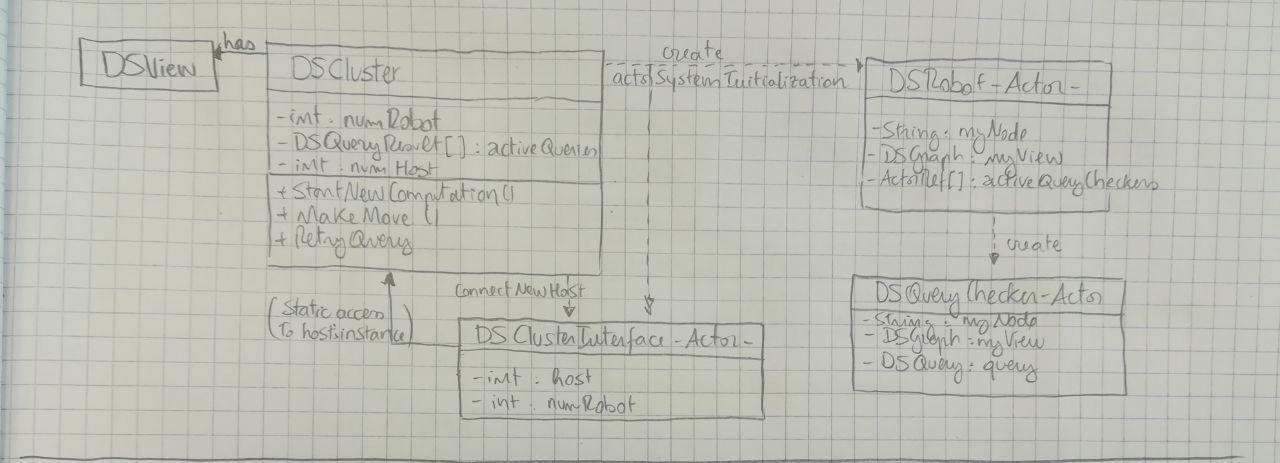 has
DSView
DSCluster
-int : numRobot
- DSQueryResult[] : activeQueries
- int : numHost
+ StartNewComputation()
+ MakeMove ()
+ RetryQuery
create
actorSystemInitialization
DSRobot-Actor-
-String : myNode
-DSGraph : myView
-ActorRef[] : activeQueryCheckers
create
DSQueryChecker-Actor
-String : myNode
- DSGraph : myView
- DSQuery : query
(Static access
To hosts instance)
ConnectNewHost
DSClusterInterface-Actor-
-int : host
- int : numRobot